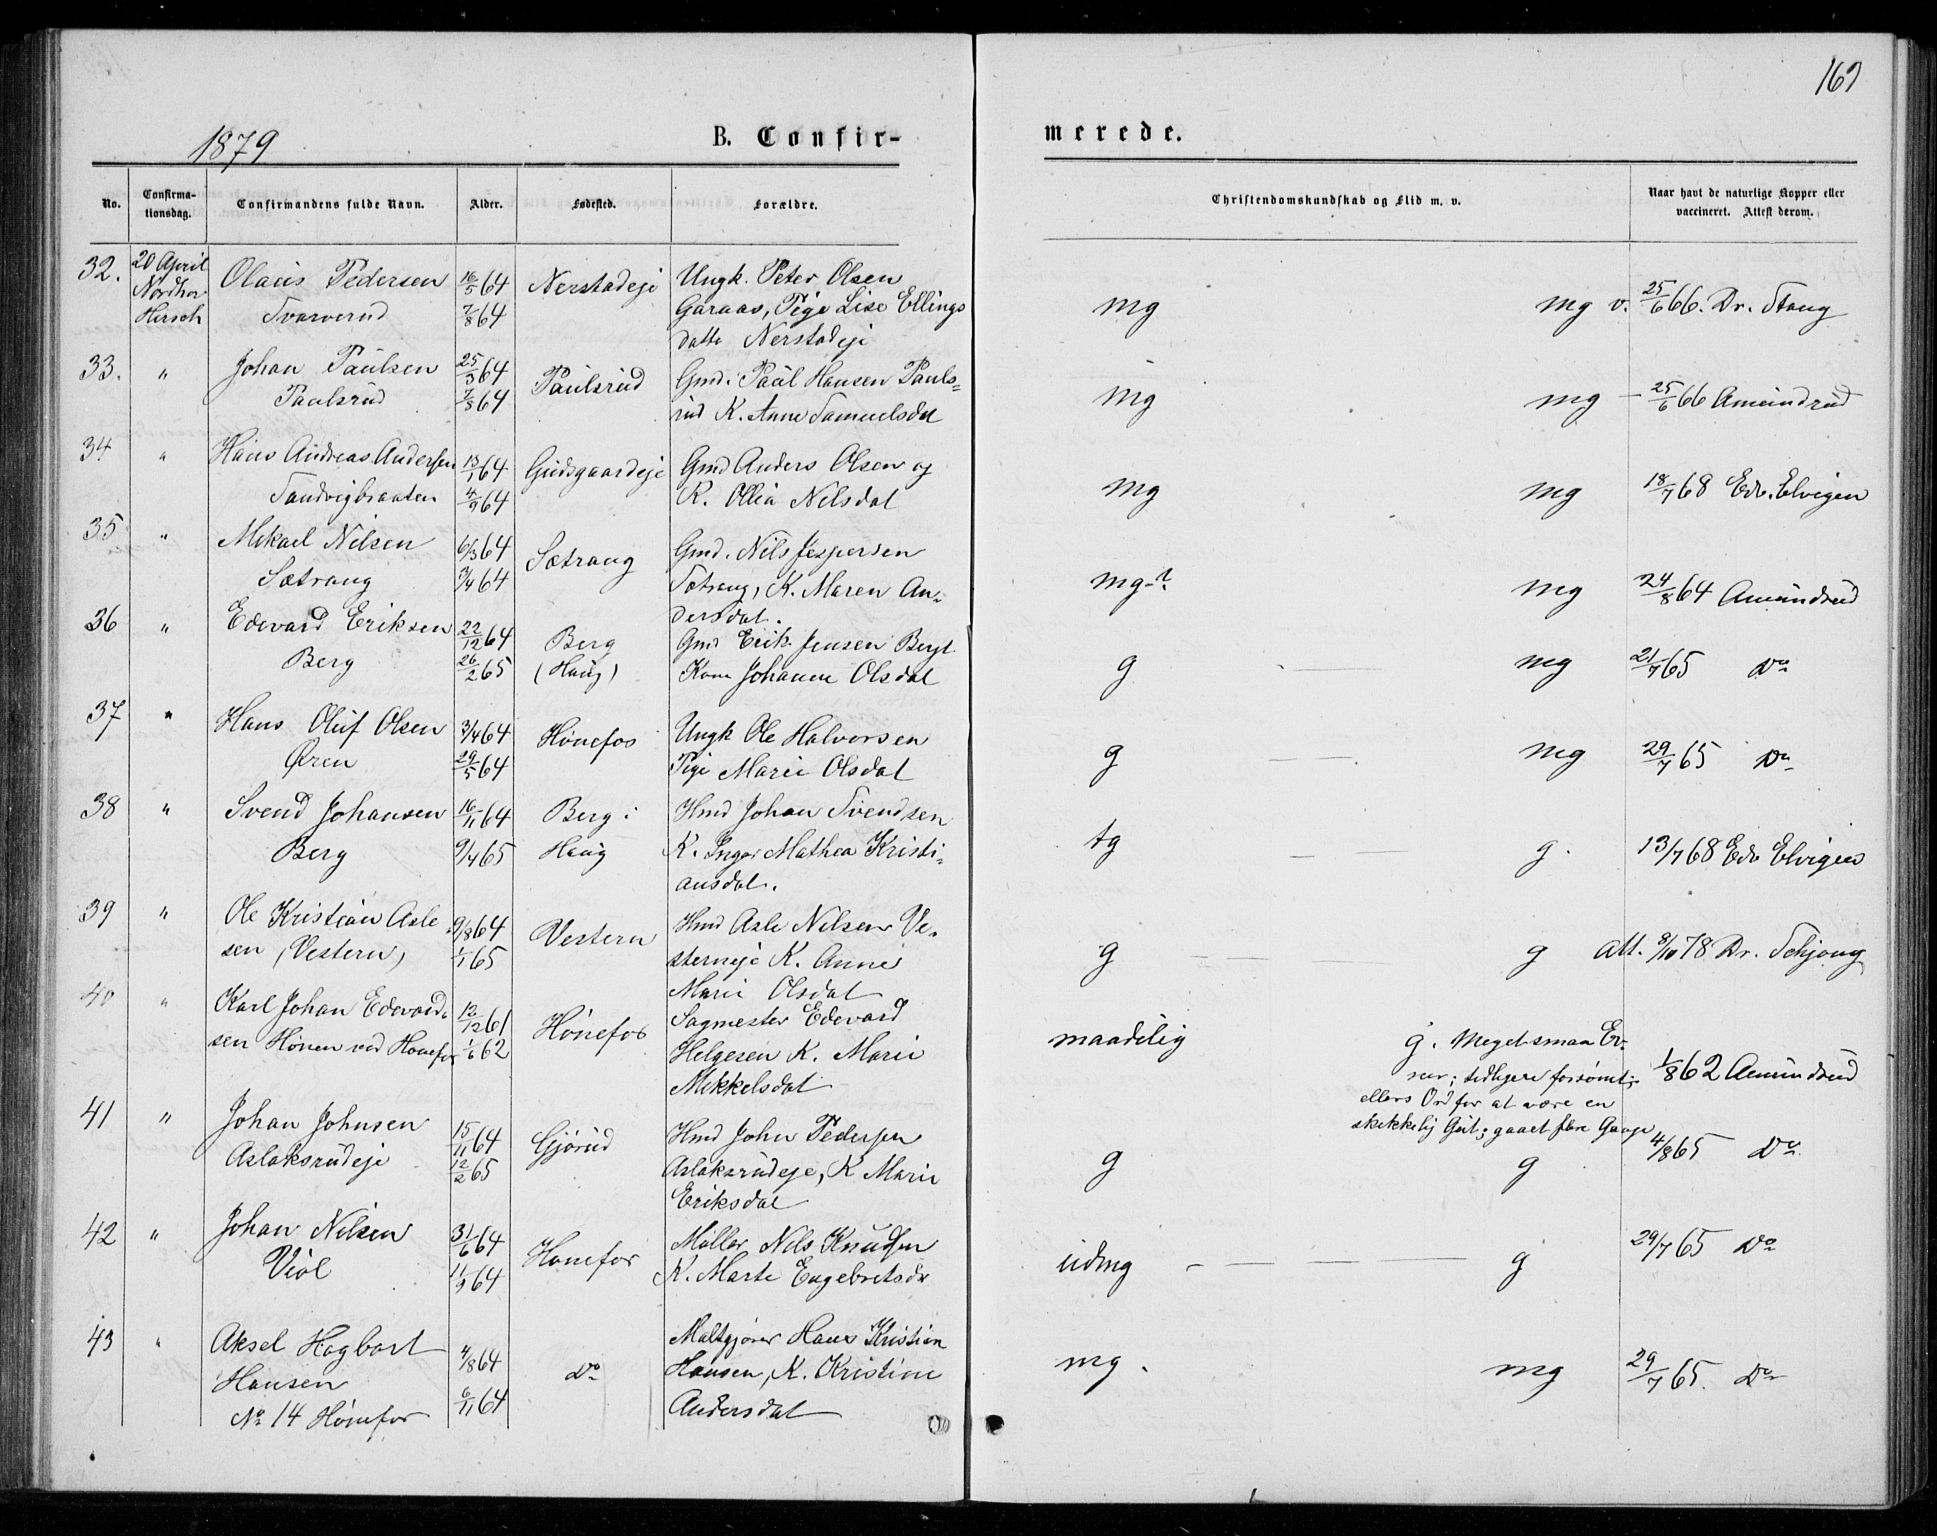 167
1879
B. Confir-
merede.
No.
Confirma-
tionsdag.
Confirmandens fulde Navn.
Alder.
Fødested.
Forældre.
Christendomskundskab og Flid m. v.
Naar havt de naturlige Kopper eller
vaccineret. Attest derom.
32. 20 April Olaus Pedersen 16/5 64 Nerstadeje Ungk. Peter Olsen
Nordho. Tvarverud 7/8 64 Garaas, Pige Lise Ellings
Hirsch datte Nerstadeje
mg mg v. 25/6 66. Dr. Stang
33. " Johan Paulsen 25/3 64 Paulsrud Gmd. Paul Hansen Pauls-
Paulsrud 7/8 64 rud K. Anne Samuelsdat
mg mg - 25/6 66 Amundrud
34 " Hans Andreas Andersen 13/1 64 Gudsgaardeje Gmd Anders Olsen og
Sandvigbraaten 4/9 64 K. Ollia Nelsdat
mg mg 18/7 68 Edv. Elvigen
35 " Mikael Nilsen 6/3 64 Sætrang Gmd. Nils Jespersen
Sætrang 3/4 64 Sætrang, K. Maren An-
dersdat.
mg-? mg 24/8 64 Amundrud
36 " Edevard Eriksen 22/12 64 Berg Gmd Erik Jensen Berg
Berg 26/2 65 (Haug) Kone Johanne Olsdat
g mg 21/7 65 Do
37 " Hans Oluf Olsen 3/4 64 Hønefos Ungk Ole Halvorsen
Øren 29/5 64 Pige Marie Olsdat
g mg 29/7 65 Do
38 " Svend Johansen 16/11 64 Berg i Hmd Johan Svendsen
Berg 9/4 65 Haug K. Inger Mathea Kristi-
ansdat.
tg g. 13/7 68 Edv Elvigen
39 " Ole Kristian Asle 9/8 64 Vestern Hmd Asle Nilsen Ve-
sen (Vestern) 1/1 65 sterneje K. Anne
Marie Olsdat
g g att. 8/10 78 Dr. Schjong
40 " Karl Johan Edevard- 12/12 61 Hønefos Sagmester Edevard
sen Hønen ved Honefos 1/6 62 Helgesen K. Marie
Mikkelsdat
maadelig g. Meget smaa Ev-
ner; tidligere forsømt; 1/8 62 Amundrud
ellers Ord for at være en
skikkelig Gut; gaaet flere Gange
41 " Johan Johnsen 15/11 64 Gjørud Hmd John Pedersen
Aslaksrudeje 12/2 65 Aslaksrudeje, K Marie
Eriksdat
g g 4/8 65 Do
42 " Johan Nilsen 31/6 64 Honefos Møller Nils Knudsen
Viol 11/9 64 K. Marte Engebretsdr
udmg g 29/7 65 Do
43 " Aksel Hagbart 4/8 64 Do Maltgjører Hans Kristian
Hansen 6/11 64 Hansen, K. Kristine
No 14 Hønefos Andersdat
mg. mg 29/7 65. Do